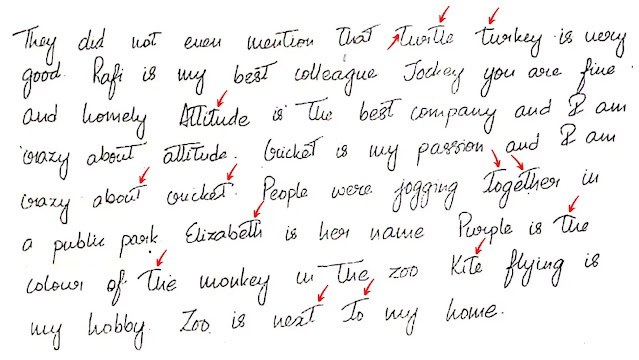 They did not even mention that turtle turkey is very
good. Rafi is my best colleague Jockey you are fine
and homely Attitude is the best company and I am
crazy about attitude. Cricket is my passion and I am
crazy about cricket. People were jogging Together in
a public park Elizabeth is her name Purple is the
colour of the monkey in the zoo Kite flying is
my hobby. Zoo is next To my home.